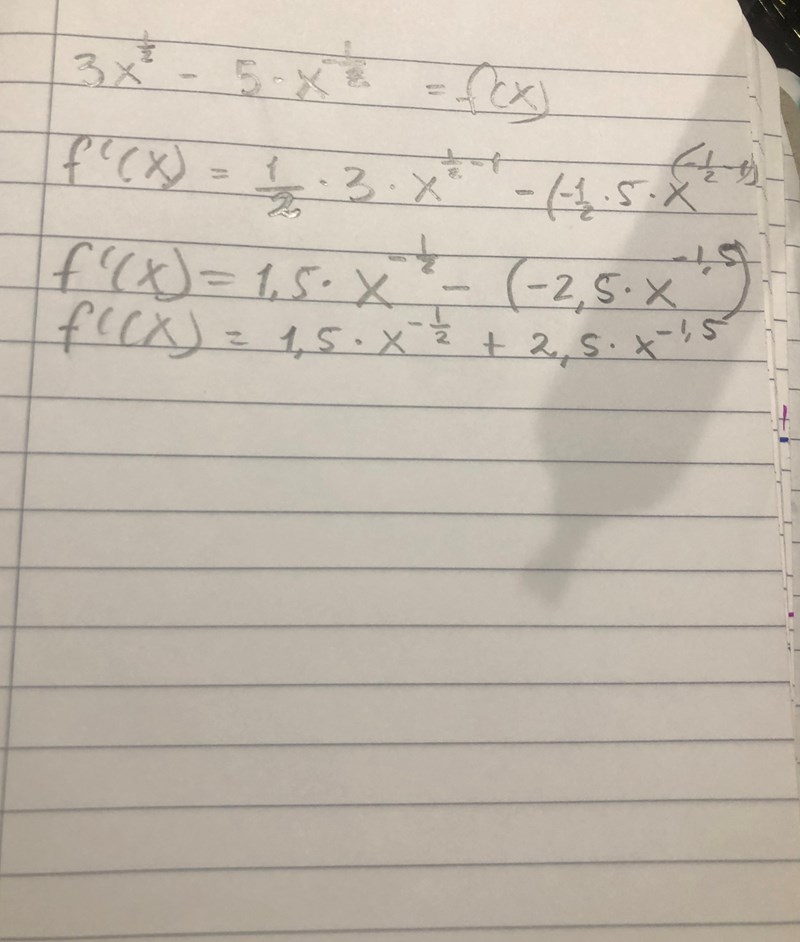 3x^{\frac{1}{2}} - 5·x^{-\frac{1}{2}} = f(x)
f'(x) = \frac{1}{2}·3·x^{\frac{1}{2}-1} - (-\frac{1}{2}·5·x^{(-\frac{1}{2}-1)}
f'(x) = 1,5·x^{-\frac{1}{2}} - (-2,5·x^{-1,5})
f'(x) = 1,5·x^{-\frac{1}{2}} + 2,5·x^{-1,5}